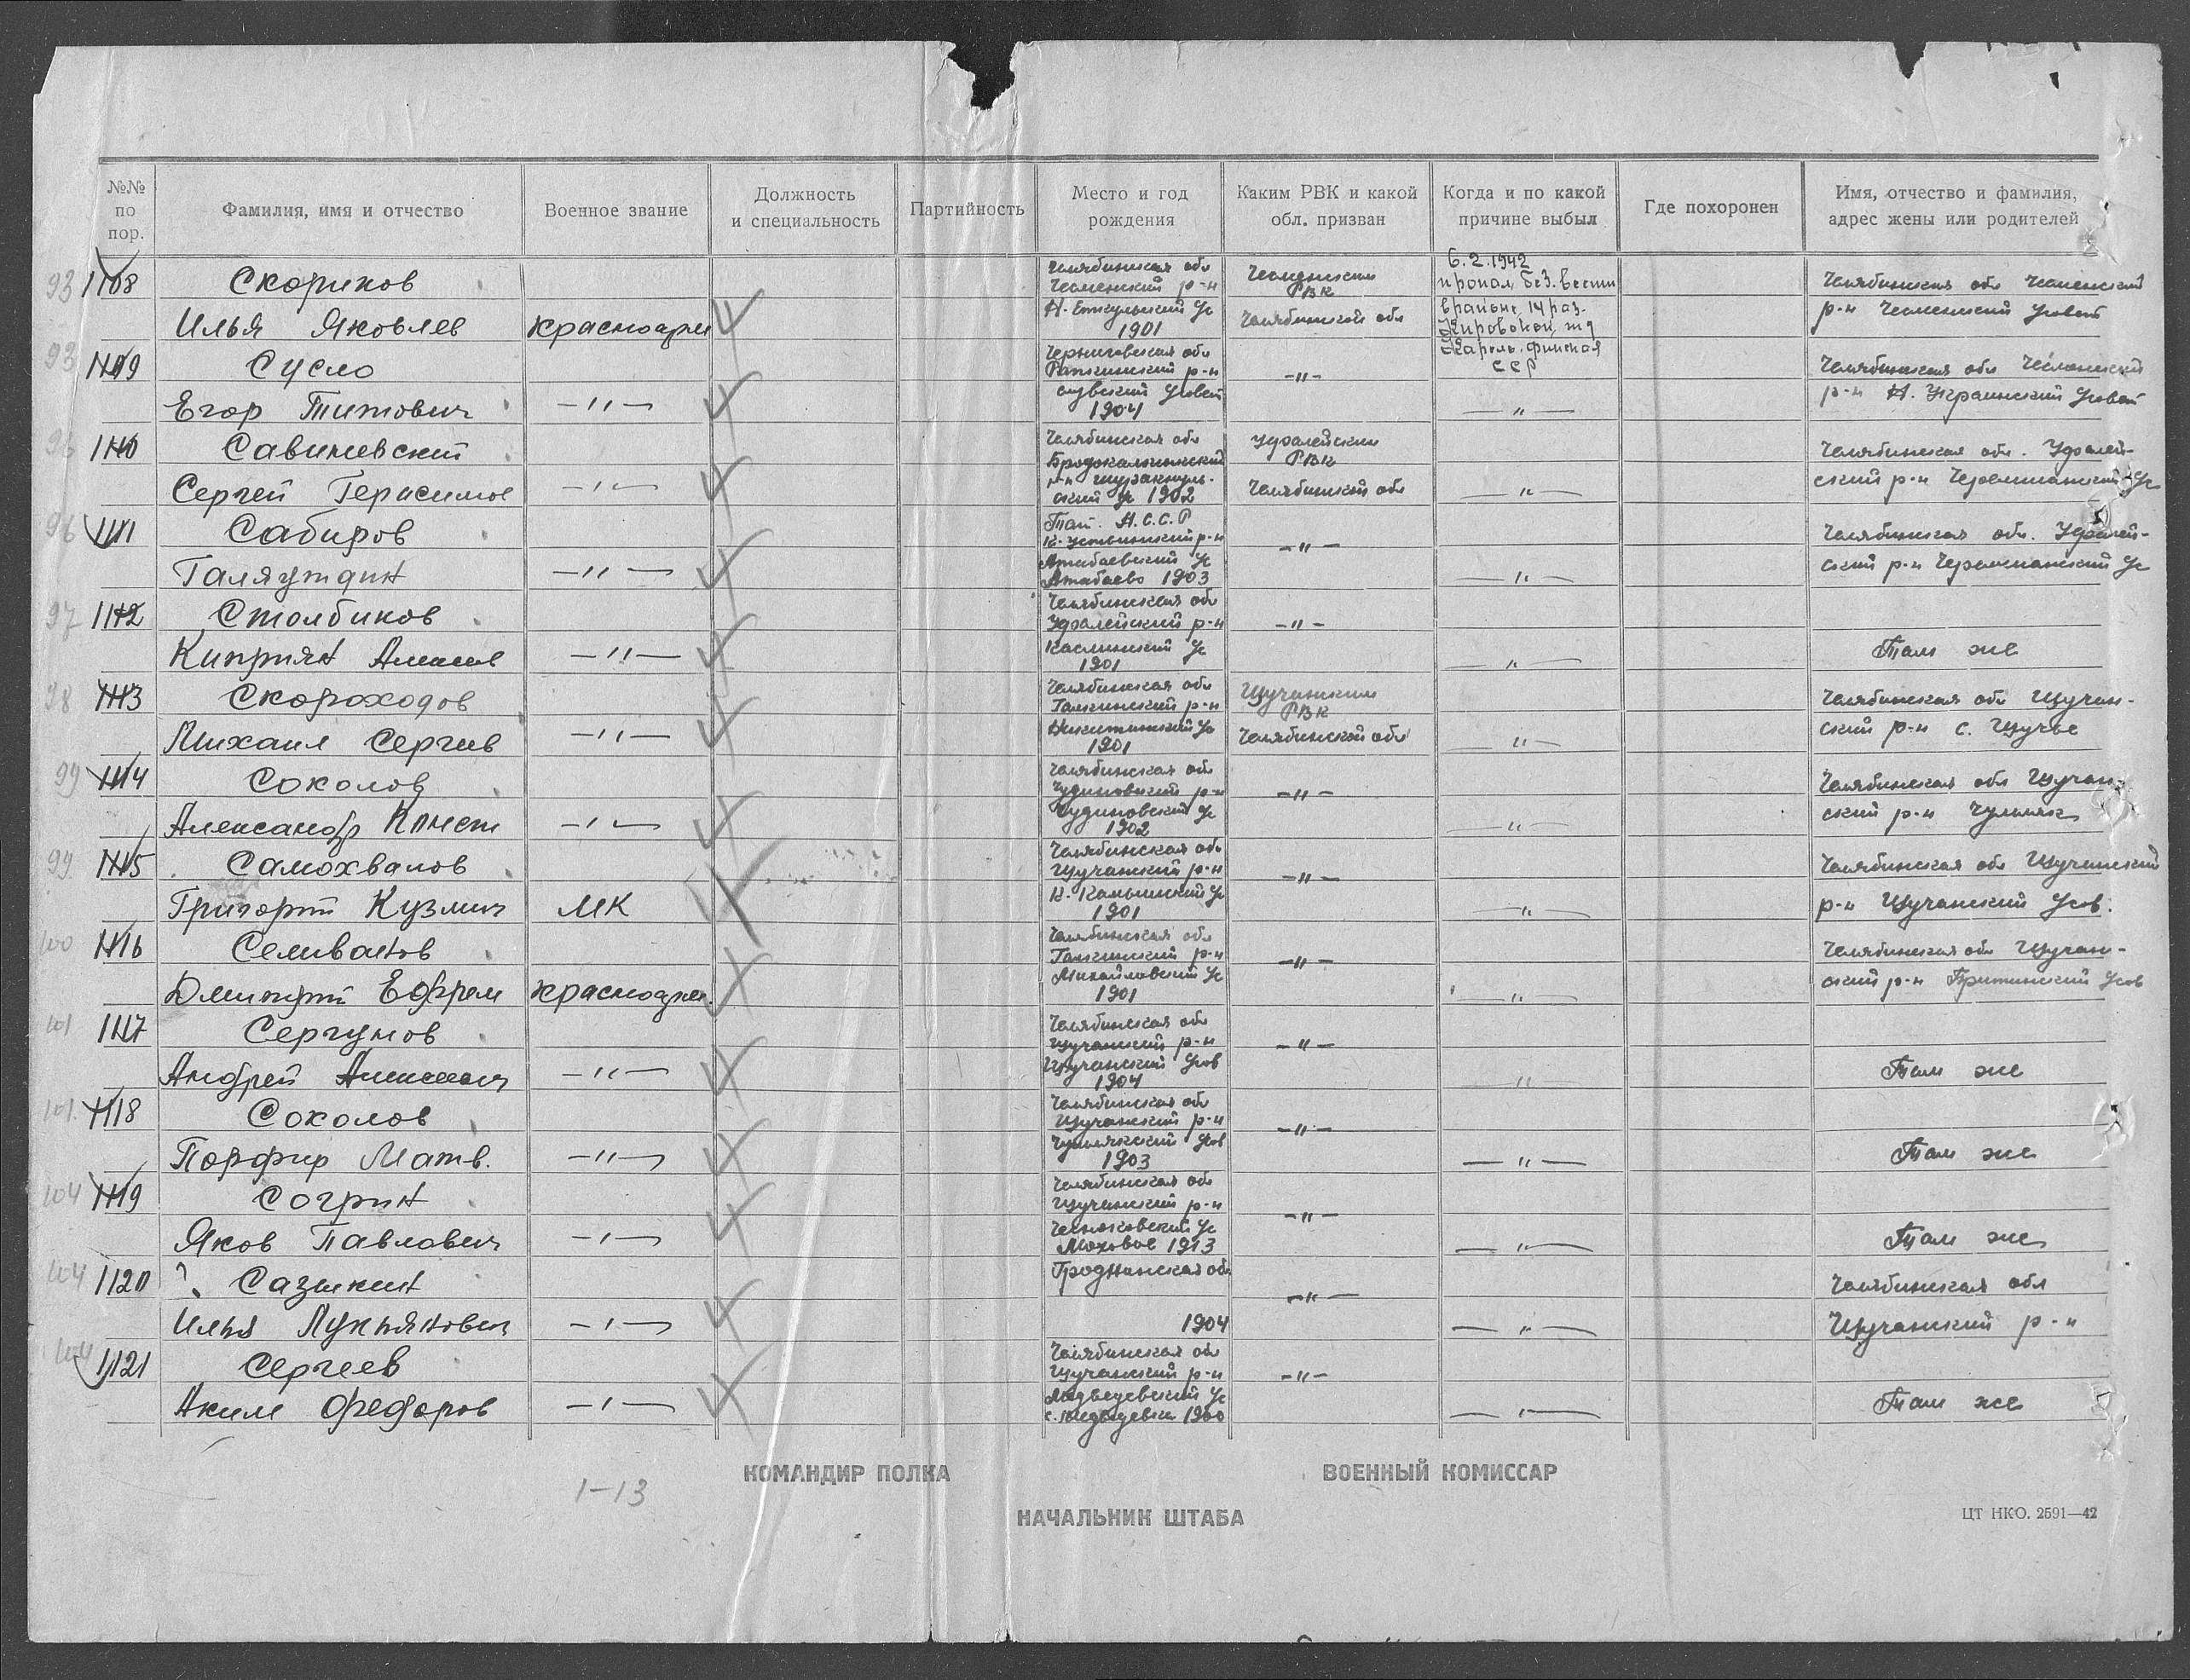 №№ по пор. Фамилия, имя и отчество Военное звание Должность и специальность Партийность Место и год рождения Каким РВК и какой обл. призван Когда и по какой причине выбыл Где похоронен Имя, отчество и фамилия, адрес жены или родителей
93 1108 Скориков Челябинская обл 6.2.1942
Чесменский р-н Чесменским РВК пропал без вести Челябинская обл Чесменский
Илья Яковлев красноарм 1901 Челябинской обл в районе 14 раз. р-н Чесменский
Кировской жд
93 1109 Сусло Черниговская обл Карело-финская ССР Челябинская обл Чесменский
р-н -"- р-н Н. Украинский
Егор Титович -"- 1904 -"-
1110 Савиневский Челябинская обл Уфалейским РВК Челябинская обл. Уфалей-
Бродокалмакский
Сергей Герасимов -"- 1902 Челябинской обл -"- ский р-н Черемшанский
96 1111 Сабиров Тат. А.С.С.Р Челябинская обл. Уфалей-
К. Устьинский р-н -"-
Галяутдин -"- Атабаевский Ус -"- ский р-н Черемшанский Ус
Атабаево 1903
97 1112 Столбиков Челябинская обл
Уфалейский р-н -"-
Киприян Алексеев -"- Каслинский Ус -"- Там же
1901
98 1113 Скороходов Челябинская обл Щучанским РВК Челябинская обл Щучан-
р-н
Михаил Сергеев -"- Никитинский Ус Челябинской обл -"- ский р-н с. Щучье
1901
99 1114 Соколов Челябинская обл Челябинская обл Щучан-
Чудиновский р-н -"-
Александр Конст -"- Чудиновский Ус -"- ский р-н Чумляк
1902
99. 1115 Самохвалов Челябинская обл Челябинская обл Щучанский
Щучанский р-н -"-
Григорий Кузмич МК 1901 -"- р-н Щучанский Усов.
100 1116 Селиванов Челябинская обл Челябинская обл Щучан-
р-н -"-
Дмитрий Ефрем красноарм. Михайловский Ус -"- ский р-н Усов
1901
101 1117 Сергунов Челябинская обл
Щучанский р-н -"-
Андрей Алексеевич -"- Щучанский Усов -"- Там же
1904
101. 1118 Соколов Челябинская обл
Щучанский р-н -"-
Порфир Матв. -"- Чумлякский Усов -"- Там же
1903
104 1119 Согрин Челябинская обл
Щучанский р-н -"-
Яков Павлович -"- Моховое 1913 -"- Там же
104 1120 ? Сазыкин Гродненская обл Челябинская обл
-"-
Илья Лукьянович -"- 1904 -"- Щучанский р-н
104 1121 Сергеев Челябинская обл
Щучанский р-н -"-
Аким Федоров -"- Медведевский Ус -"- Там же
с. Медведевка 1900
КОМАНДИР ПОЛКА ВОЕННЫЙ КОМИССАР
1-13
НАЧАЛЬНИК ШТАБА
ЦТ НКО. 2591—42